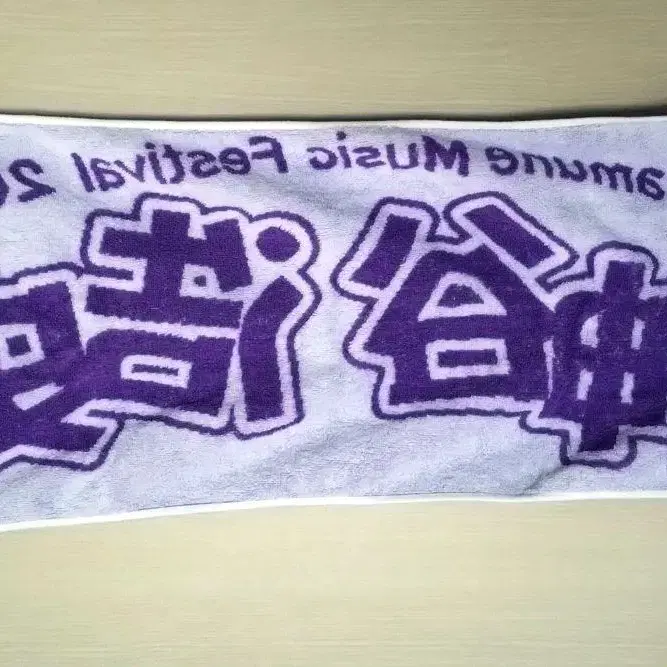 amune Music Festival 20
神谷浩史